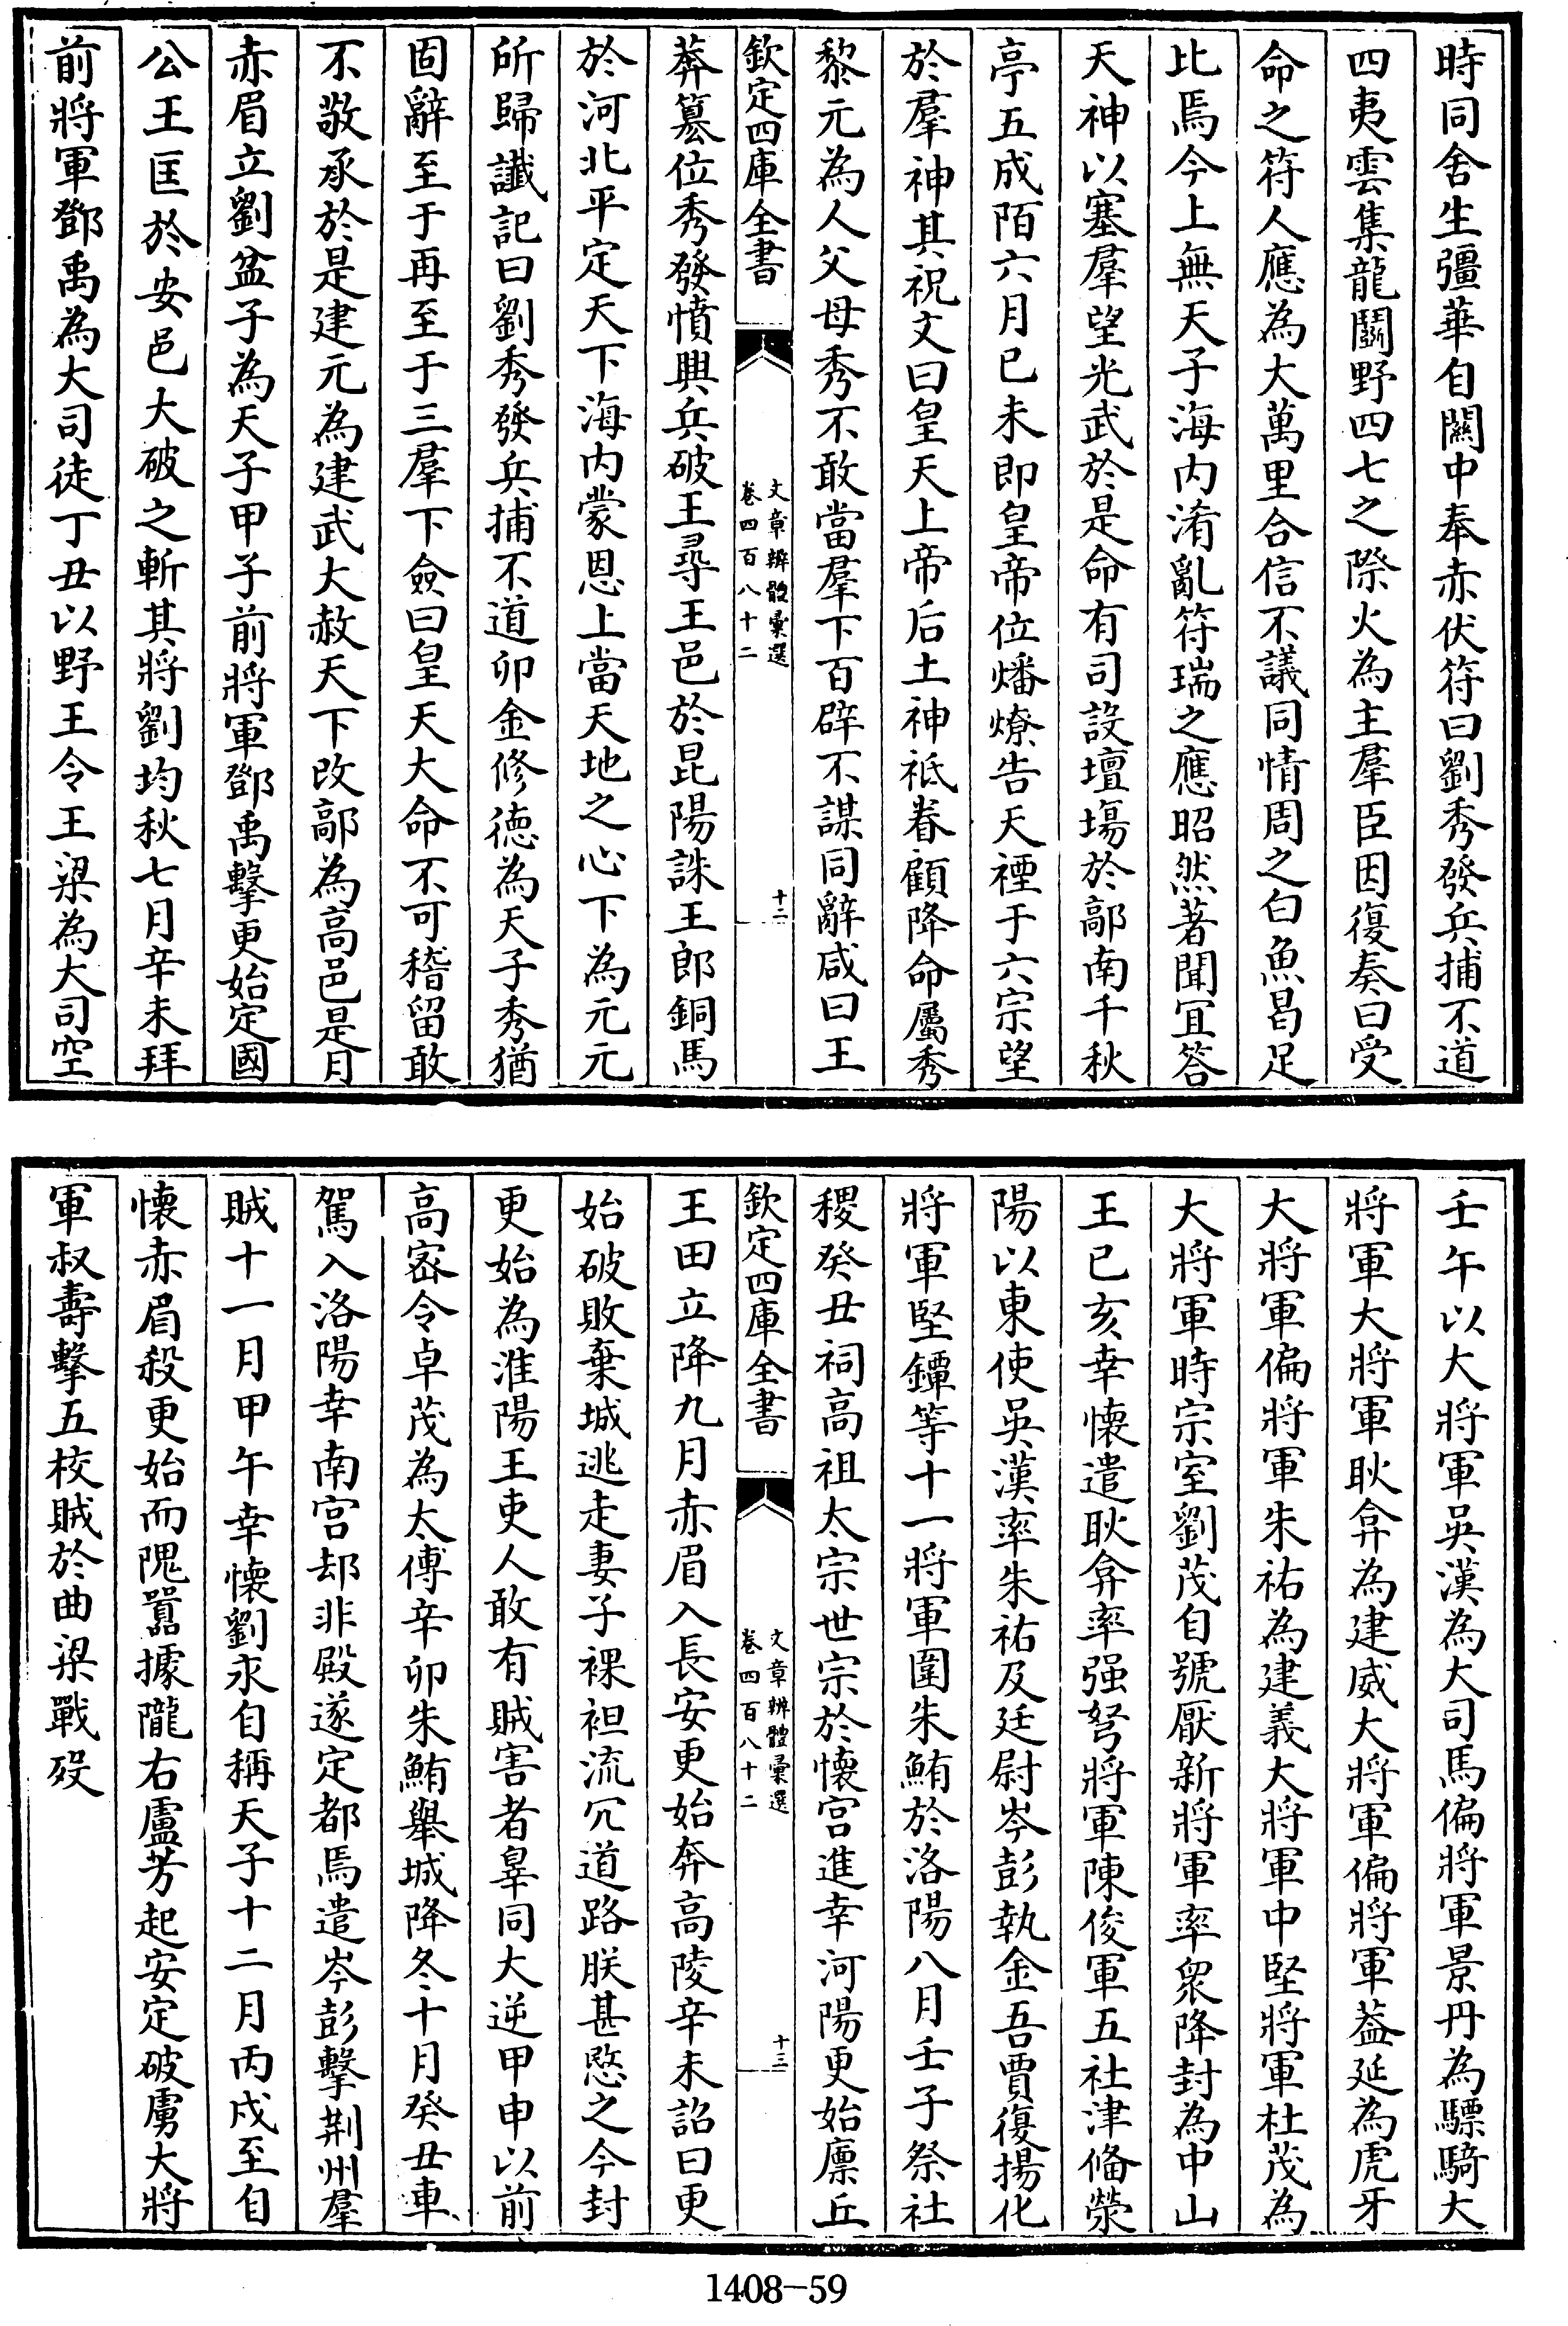 時同舍生彊華自關中奉赤伏符曰劉秀發兵捕不道
四夷雲集龍鬭野四七之際火為主羣臣因復奏曰受
命之符人應為大萬里合信不議同情周之白魚曷足
比焉今上無天子海内淆亂符瑞之應昭然著聞宜答
天神以塞羣望光武於是命有司設壇場於鄗南千秋
亭五成陌六月已未即皇帝位燔燎告天禋于六宗望
於羣神其祝文曰皇天上帝后土神祗眷顧降命屬秀
黎元為人父母秀不敢當羣下百辟不謀同辭咸曰王
欽定四庫全書
文章辨體彙選
卷四百八十二
十二
莽簒位秀發憤興兵破王尋王邑於昆陽誅王郎銅馬
於河北平定天下海内蒙恩上當天地之心下為元元
所歸讖記曰劉秀發兵捕不道卯金修德為天子秀猶
固辭至于再至于三羣下僉曰皇天大命不可稽留敢
不敬承於是建元為建武大赦天下改鄗為高邑是月
赤眉立劉盆子為天子甲子前將軍鄧禹擊更始定國
公王匡於安邑大破之斬其將劉均秋七月辛未拜
前將軍鄧禹為大司徒丁丑以野王令王梁為大司空
壬午以大將軍吳漢為大司馬偏將軍景丹為驃騎大
將軍大將軍耿弇為建威大將軍偏將軍葢延為虎牙
大將軍偏將軍朱祐為建義大將軍中堅將軍杜茂為
大將軍時宗室劉茂自號厭新將軍率衆降封為中山
王已亥幸懷遣耿弇率强弩將軍陳俊軍五社津備滎
陽以東使吳漢率朱祐及廷尉岑彭執金吾賈復揚化
將軍堅鐔等十一將軍圍朱鮪於洛陽八月壬子祭社
稷癸丑祠高祖太宗世宗於懷宫進幸河陽更始廪丘
欽定四庫全書
文章辨體彙選
卷四百八十二
十三
王田立降九月赤眉入長安更始奔高陵辛未詔曰更
始破敗棄城逃走妻子裸袒流冗道路朕甚愍之今封
更始為淮陽王吏人敢有賊害者辠同大逆甲申以前
高密令卓茂為太傅辛卯朱鮪舉城降冬十月癸丑車
駕入洛陽幸南宫却非殿遂定都焉遣岑彭擊荆州羣
賊十一月甲午幸懷劉永自稱天子十二月丙戌至自
懷赤眉殺更始而隗囂據隴右盧芳起安定破虜大將
軍叔壽擊五校賊於曲梁戰歿
1408-59